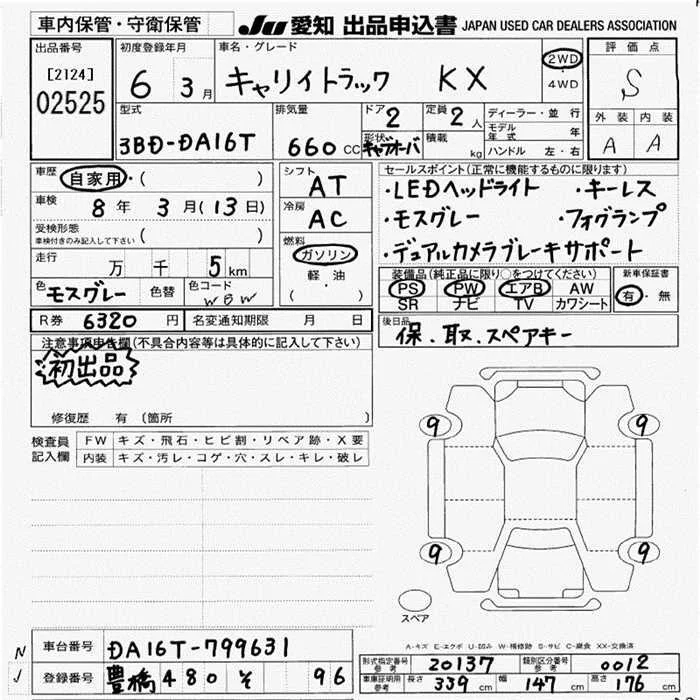 車内保管・守衛保管
JU 愛知 出品申込書 JAPAN USED CAR DEALERS ASSOCIATION
出品番号 [2124] 02525
初度登録年月 6 3月
車名・グレード キャリイトラック KX
2WD・4WD
評価点 S
外装 A 内装 A
型式 3BD-DA16T
排気量 660 CC
ドア 2
形状 キャブオーバ
定員 2人
積載 kg
ディーラー・並行
モデル年式 年
ハンドル 左・右
車歴 自家用・( )
車検 8年 3月(13日)
受検形態 車検付きのみ記入して下さい ( )
走行 万 千 5 km
色 モスグレー 色替 色コード
シフト AT
冷房 AC
燃料 ガソリン 軽油 ( )
セールスポイント(正常に機能するものに限ります)
・LEDヘッドライト ・キーレス
・モスグレー ・フォグランプ
・デュアルカメラブレーキサポート
装備品(純正品に限り○をつけてください)
PS PW エアB AW
SR ナビ TV カワシート
新車保証書 有・無
R券 6320 円 名変通知期限 月 日
後日品 保.取.スペアキー
注意事項申告欄(不具合内容等は具体的に記入して下さい)
初出品
修復歴 有 (箇所 )
検査員記入欄
FW キズ・飛石・ヒビ割・リペア跡・X要
内装 キズ・汚レ・コゲ・穴・スレ・キレ・破レ
9 9
9 9
スペア
A-キズ E-エクボ U-凹み W-補修跡 S-サビ C-腐食 XX-交換済
N 車台番号 DA16T-799631
J 登録番号 豊橋 480 そ 96
形式指定番号 参考 20137 類別区分番号 参考 0012
車庫証明用 参考 長さ 339 cm 幅 147 cm 高さ 176 cm